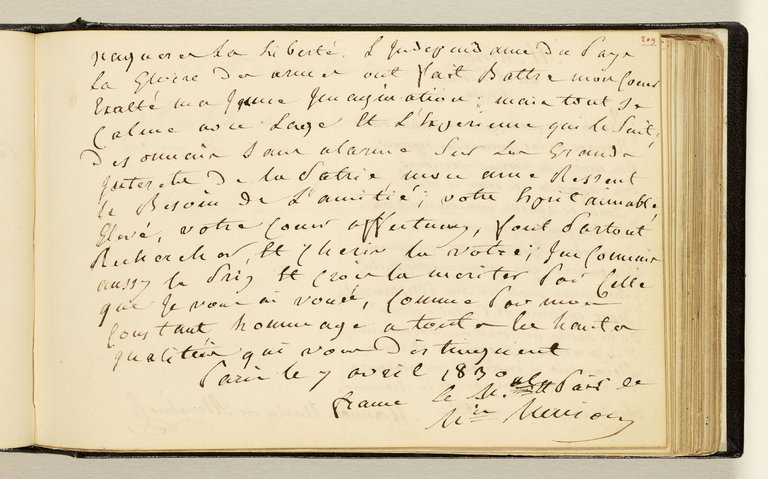 209
naguere la Liberté. L'Independance du Pays
la Gloire des armes ont fait Battre mon Coeur
Exalté ma Jeune Imagination; mais tout se
Calme avec Lage Et L'Experience qui le Suit;
Desormais Sans alarme Sur Les Grands
Interets De la Patrie mon ame Ressent
le Besoin de L'amitié; votre Esprit aimable,
Elevé, votre Coeur affectueux, font Partout
Rechercher, Et Cherir la votre; J'en Connais
aussy le Prix Et Crois la meriter Par Celle
que Je vous ai vouée, Comme Par mon
Constant hommage a toutes les hautes
qualités qui vous Distinguent
Paris le 7 avril 1830
le M. Pair de
france